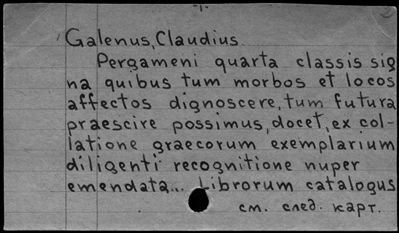 Galenus, Claudius.
Pergameni quarta classis sig
na quibus tum morbos et locos
affectos dignoscere, tum futura
praescire possimus, docet, ex col-
latione graecorum exemplarium
diligenti recognitione nuper
emendata... Librorum catalogus
см. след. карт.